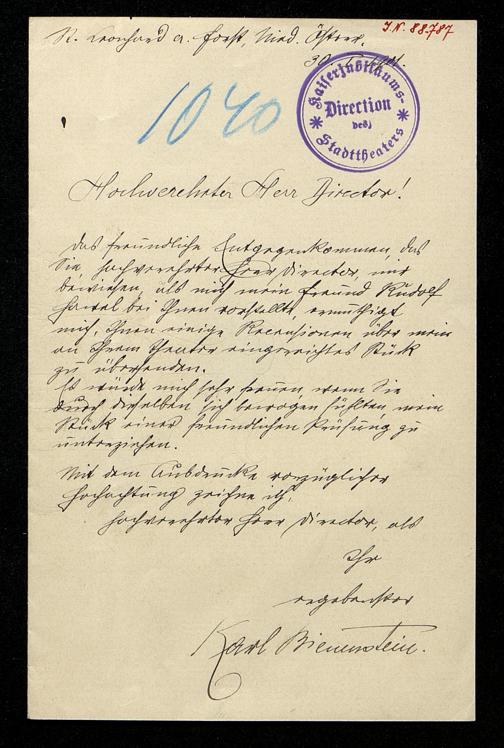 I.N. 88787
St. Leonhard a. Forst, Nied. Östrr.
Kaiserjubiläums-
Direction
des
Stadttheaters
1040
Hochverehrter Herr Director!
Das freundliche Entgegenkommen, das
Sie, hochverehrter Herr Director, mir
bewiesen, als mich mein Freund Rudolf
Hawel bei Ihnen vorstellte, ermuthigt
mich, Ihnen einige Recensionen über mein
an Ihrem Theater eingereichtes Stück
zu übersenden.
Es würde mich sehr freuen, wenn Sie
durch dieselben sich bewogen fühlten, mein
Stück einer freundlichen Prüfung zu
unterziehen.
Mit dem Ausdrucke vorzüglicher
Hochachtung zeichne ich,
hochverehrter Herr Director, als
Ihr
ergebenster
Karl Bienenstein.